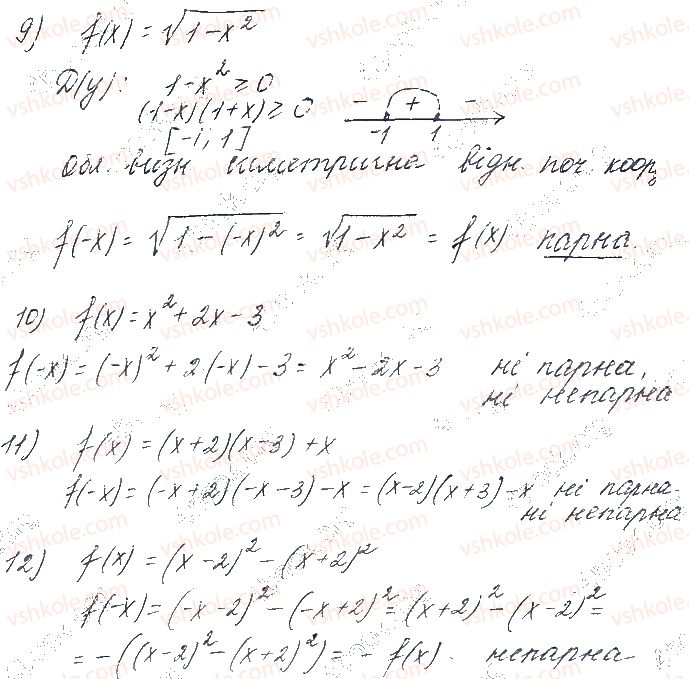 9) f(x) = √(1-x²)
D(y): 1-x² ≥ 0
(1-x)(1+x) ≥ 0 - + -
-1 1
[-1; 1]
обл. визн симетрична відн. поч. коор.
f(-x) = √(1-(-x)²) = √(1-x²) = f(x) парна.
10) f(x) = x² + 2x - 3
f(-x) = (-x)² + 2(-x) - 3 = x² - 2x - 3 ні парна,
ні непарна
11) f(x) = (x+2)(x-3) + x
f(-x) = (-x+2)(-x-3) - x = (x-2)(x+3) - x ні парна
ні непарна
12) f(x) = (x-2)² - (x+2)²
f(-x) = (-x-2)² - (-x+2)² = (x+2)² - (x-2)² =
= -((x-2)² - (x+2)²) = - f(x). непарна